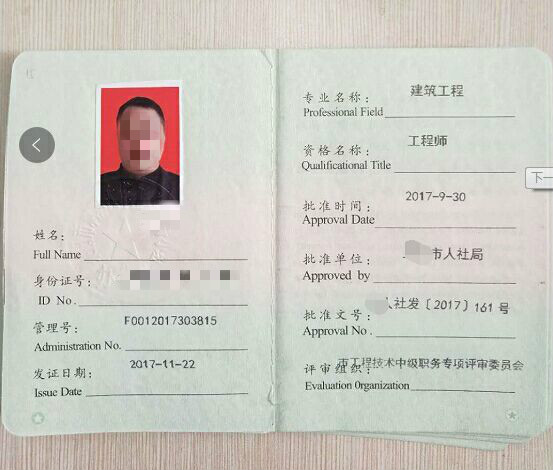 姓名：
Full Name
身份证号：
ID No.
管理号： F0012017303815
Administration No.
发证日期： 2017-11-22
Issue Date
专业名称： 建筑工程
Professional Field
资格名称： 工程师
Qualificational Title
批准时间： 2017-9-30
Approval Date
批准单位： 市人社局
Approved by
批准文号： 人社发〔2017〕161号
Approval No.
评审组织： 市工程技术中级职务专项评审委员会
Evaluation Organization
下一